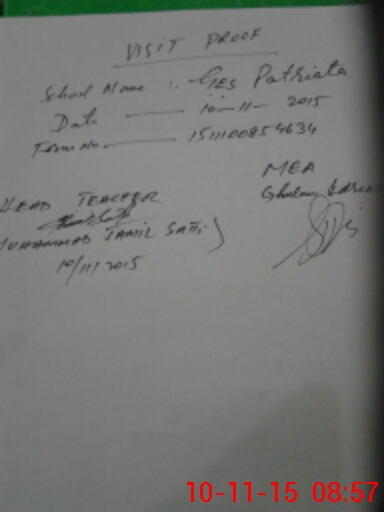 VISIT PROOF
School Name :- GES Patriata
Date —— 10-11- 2015
Form no —— 1511100854634
MEA
HEAD TEACHER
MUHAMMAD JAMIL SATTI
10/11/2015
10-11-15 08:57